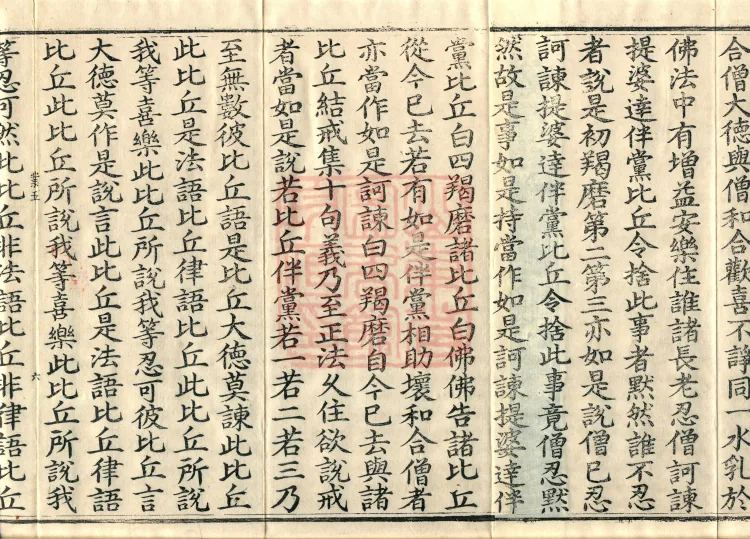 合僧大德與僧和合歡喜不諍同一水乳於
佛法中有增益安樂住誰諸長老忍僧訶諫
提婆達伴黨比丘令捨此事者默然誰不忍
者說是初羯磨第二第三亦如是說僧已忍
訶諫提婆達伴黨比丘令捨此事竟僧忍默
然故是事如是持當作如是訶諫提婆達伴
黨比丘白四羯磨諸比丘白佛佛告諸比丘
從今已去若有如是伴黨相助壞和合僧者
亦當作如是訶諫白四羯磨自今已去與諸
比丘結戒集十句義乃至正法久住欲說戒
者當如是說若比丘伴黨若一若二若三乃
至無數彼比丘語是比丘大德莫諫此比丘
此比丘是法語比丘律語比丘此比丘所說
我等喜樂此比丘所說我等忍可彼比丘言
大德莫作是說言此比丘是法語比丘律語
比丘此比丘所說我等喜樂此比丘所說我
等忍可然此比丘非法語比丘非律語比丘
六